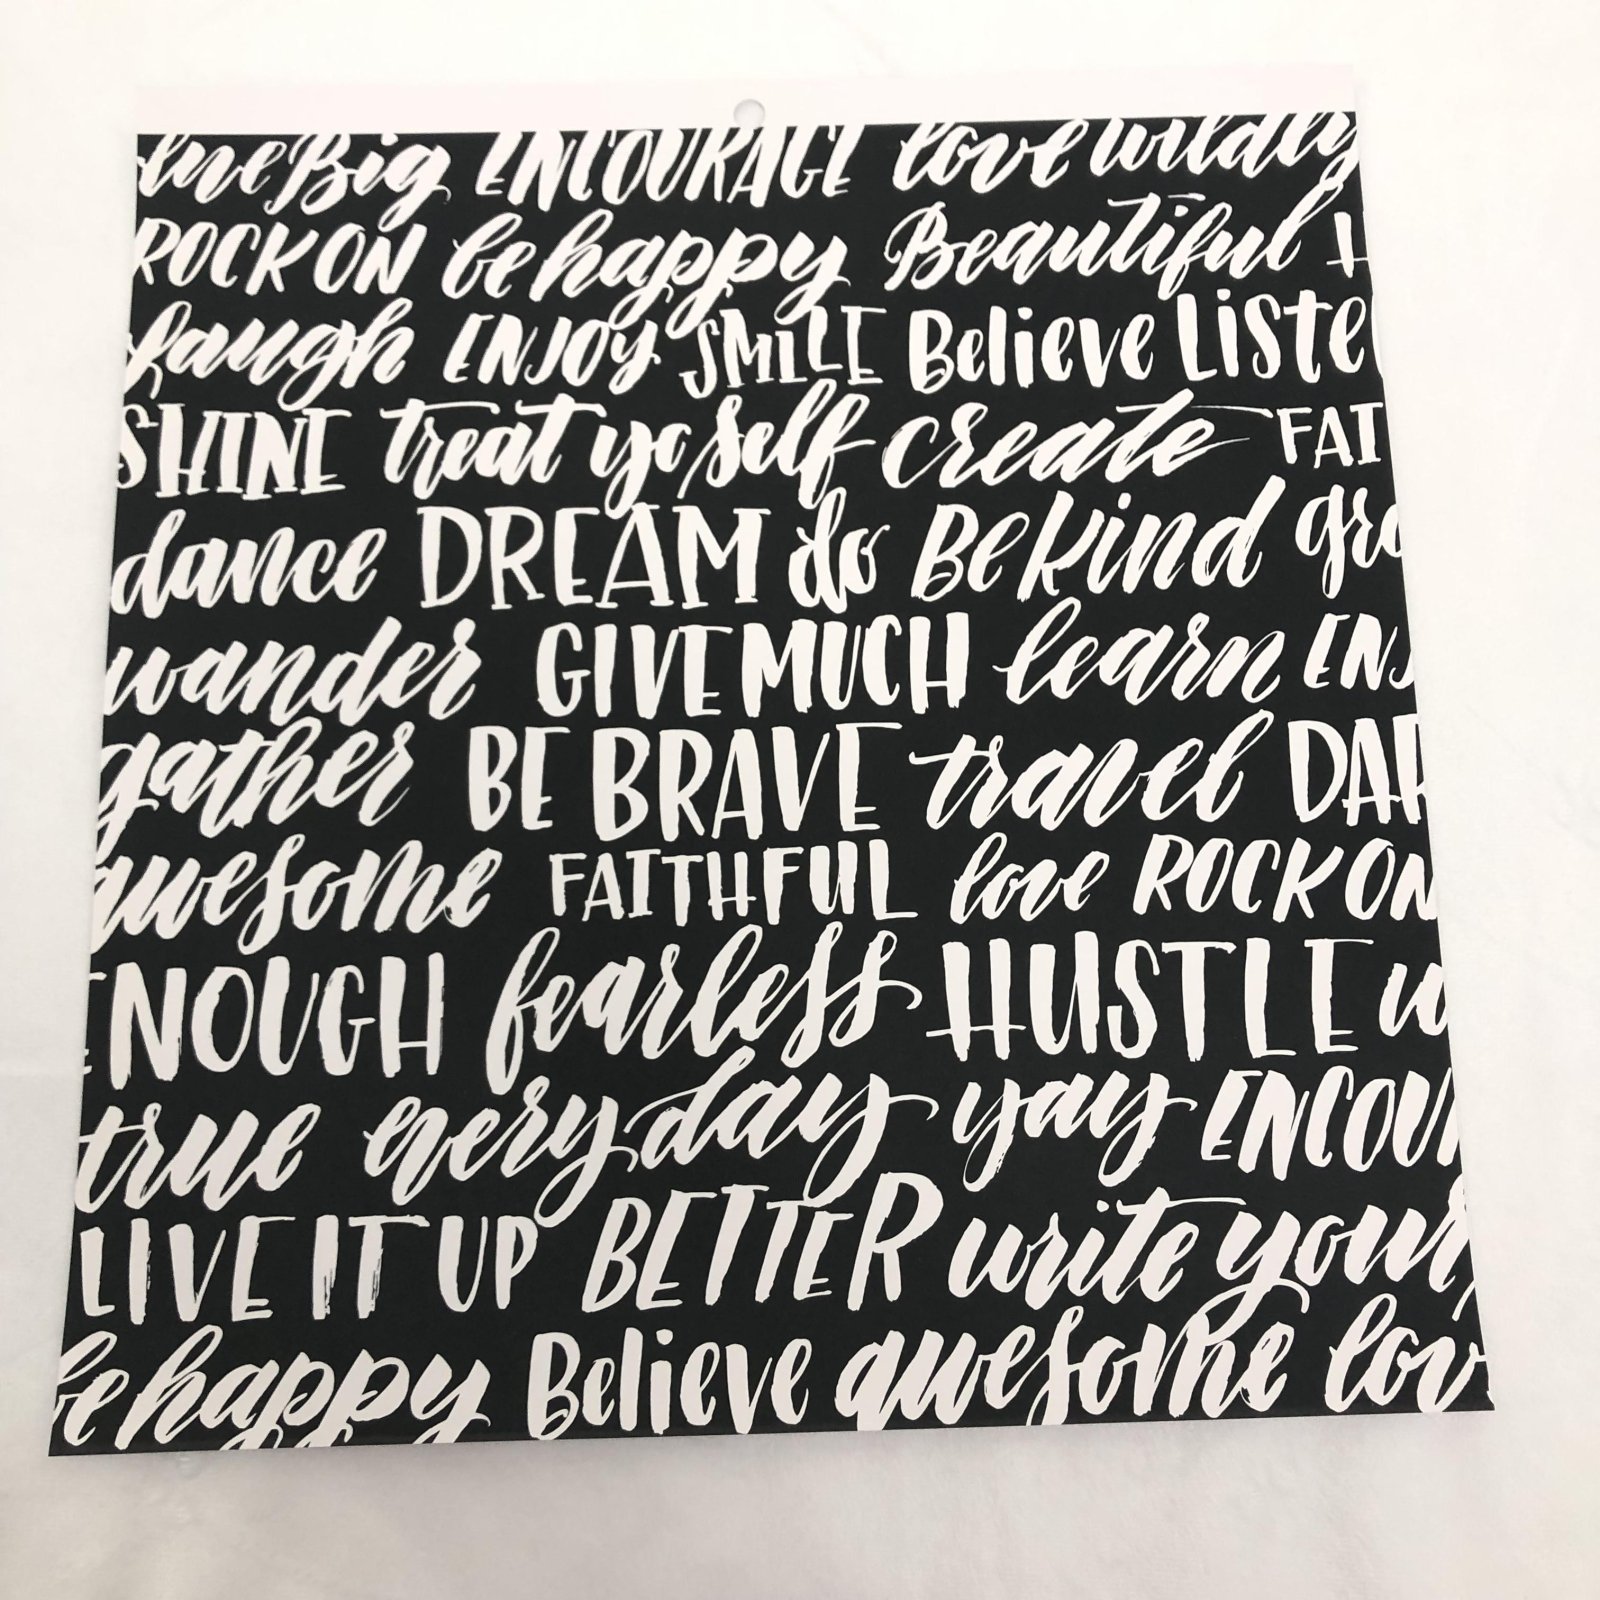 live Big ENCOURAGE love wildly
ROCK ON be happy Beautiful H
laugh ENJOY SMILE Believe Liste
SHINE treat yo self create FAIT
dance DREAM do Be Kind gro
wander GIVE MUCH learn ENJ
gather BE BRAVE travel DAR
awesome FAITHFUL love ROCK ON
ENOUGH fearless HUSTLE w
true every day yay ENCOUR
LIVE IT UP BETTER write your
be happy Believe awesome lov